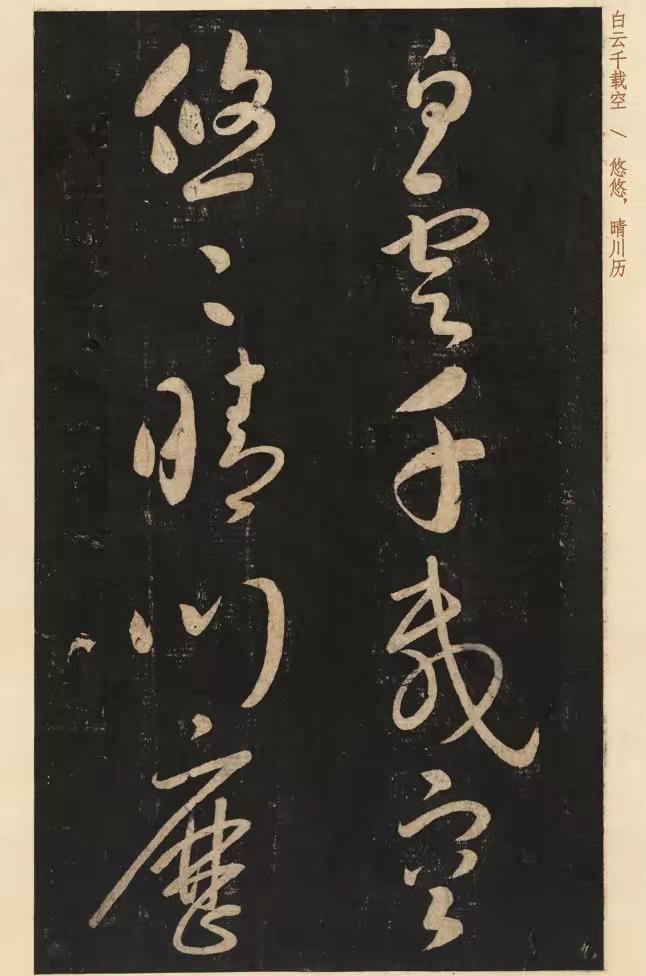 白云千载空 / 悠悠，晴川历
白雲千載空
悠々晴川歷
九